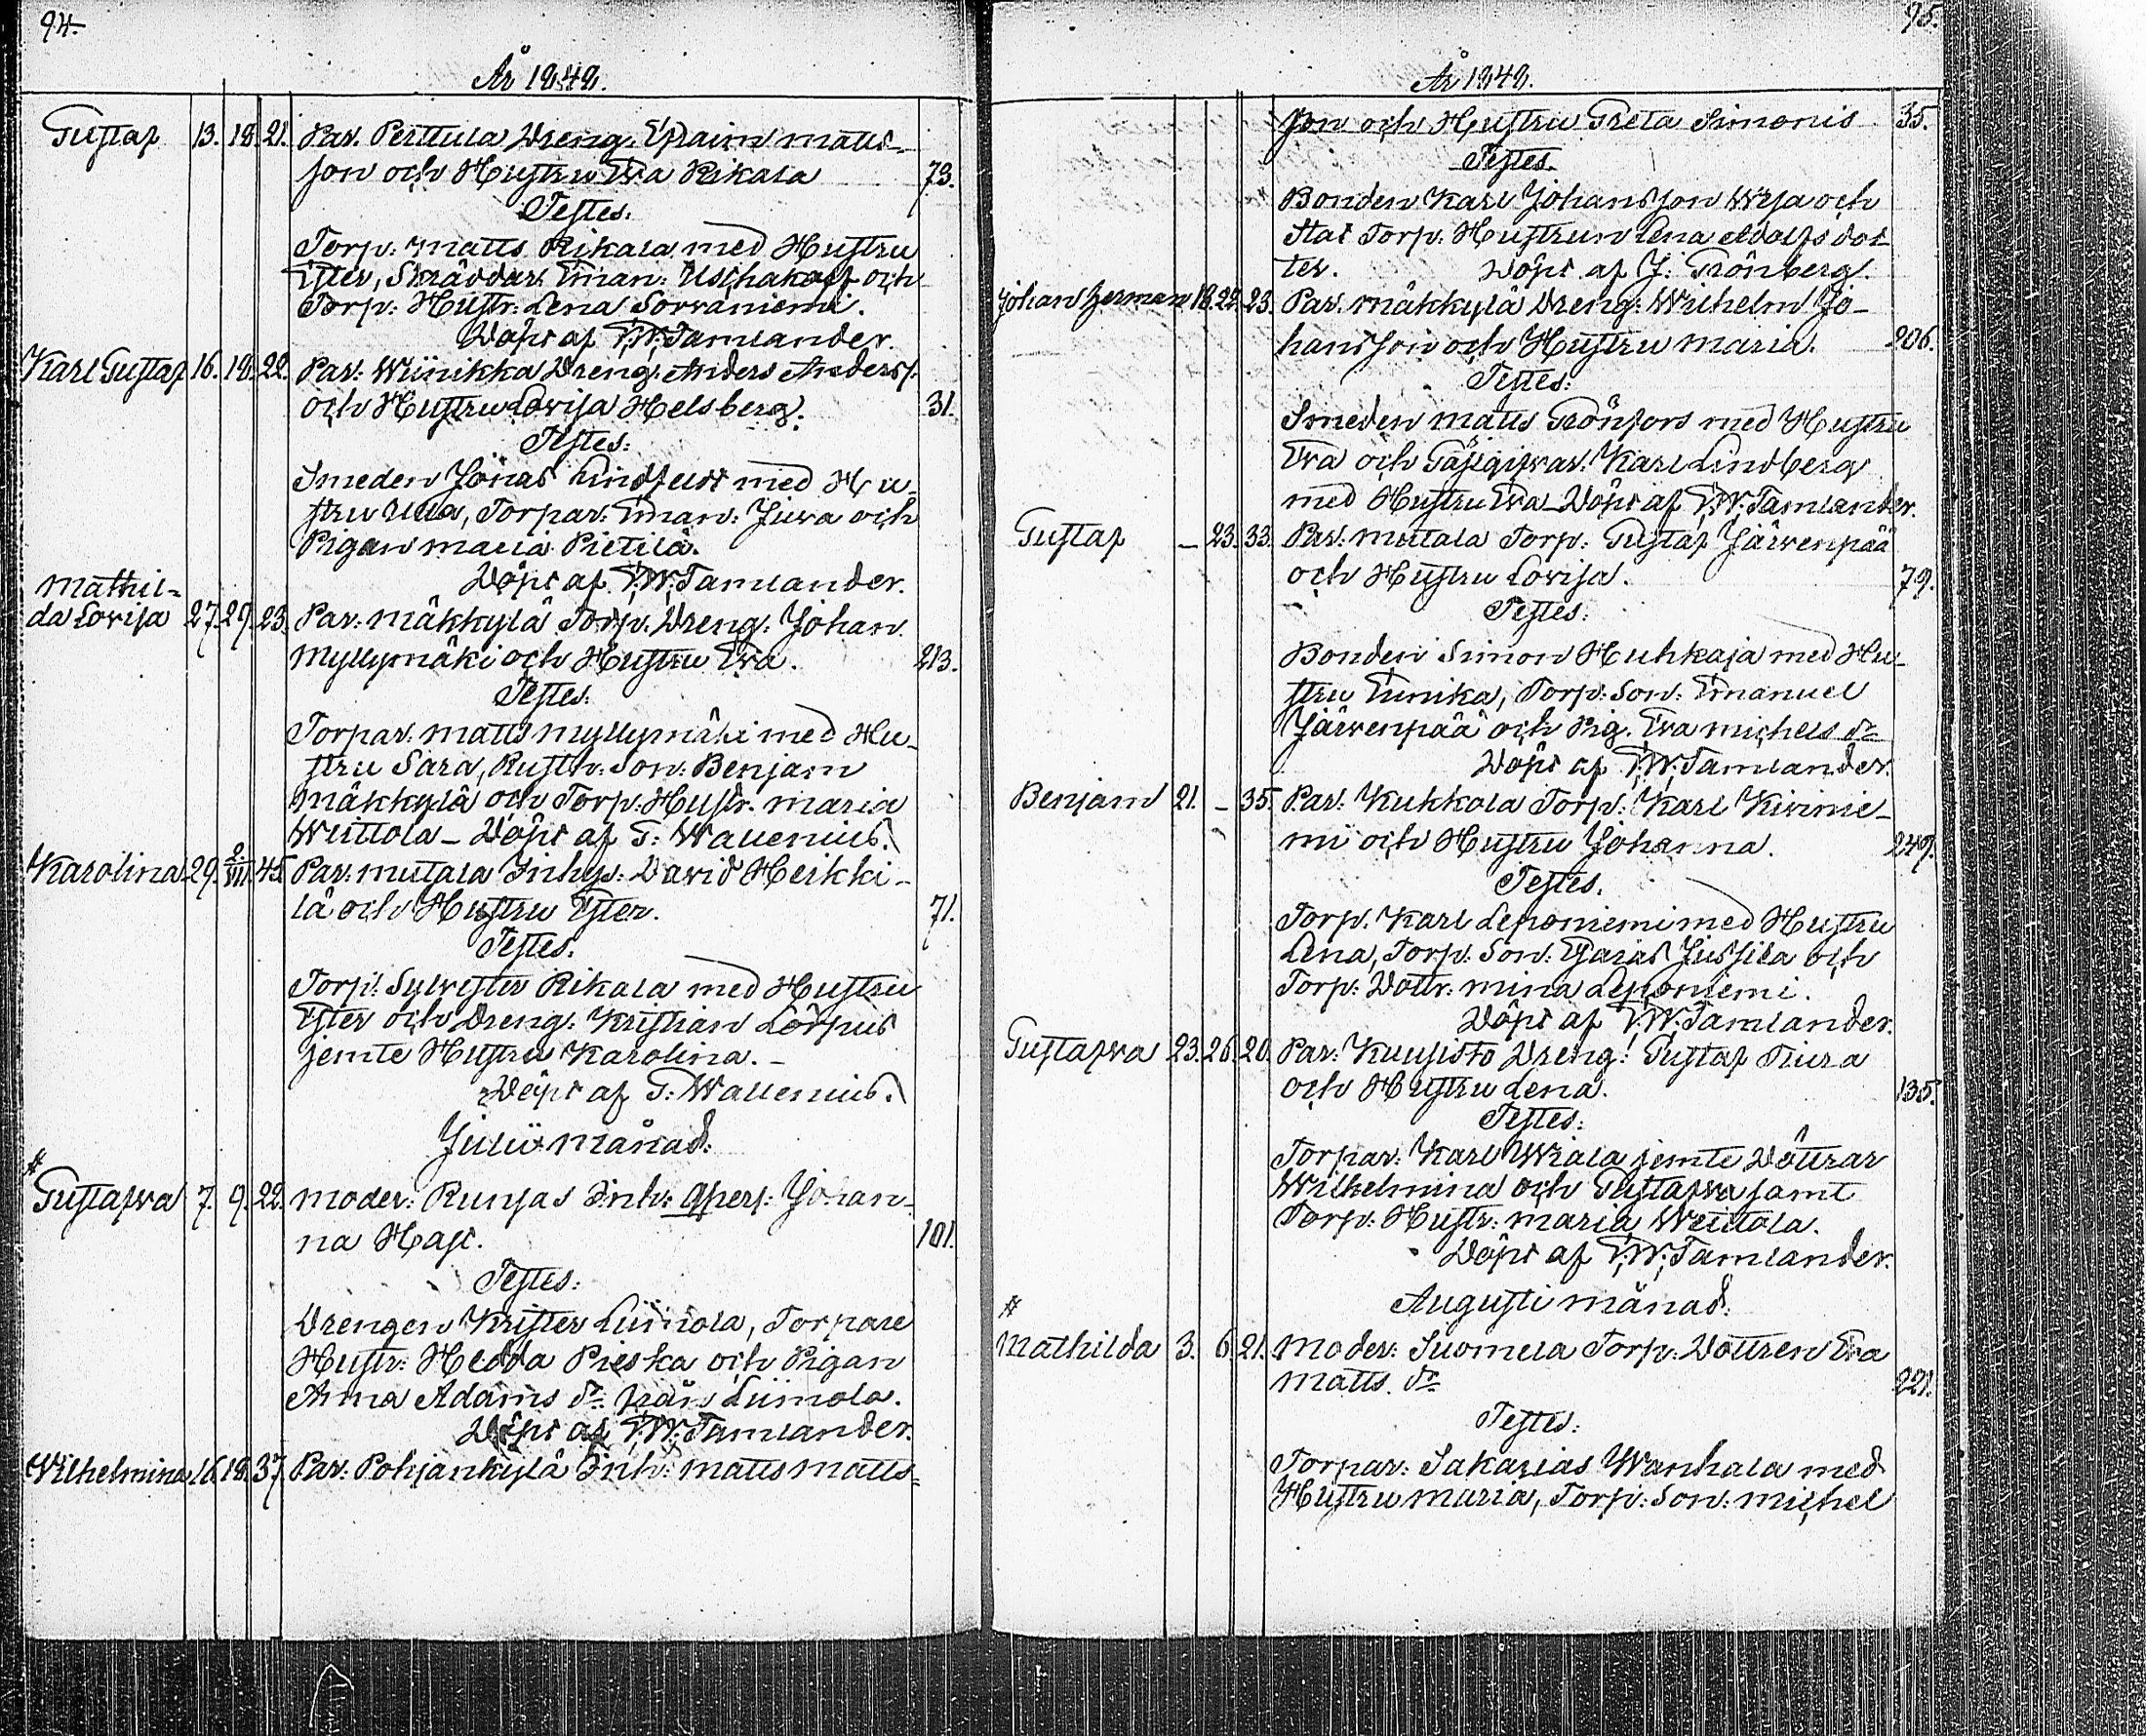 94.
År 1848.
Gustaf 13. 18. 21. Par. Perttula Dreng. Efraim Matts-
son och Hustru Eva Rikala 73.
Testes.
Torp: Matts Rikala med Hustru
Ester, Skräddar. Eman: Uschakoff och
Torp: Hustr: Lena Sorvaniemi.
Döpt af F. W. Tamlander.
Karl Gustaf 16. 18. 22. Par: Wiinikka Dreng. Anders Anderss.
och Hustru Lovisa Helsberg. 31.
Testes:
Smeden Jonas Lindqvist med Hu-
stru Ulla, Torpar: Eman: Juva och
Pigan Maria Pietilä.
Döpt af F. W. Tamlander.
Mathil-
da Lovisa 27. 29. 23. Par: Mäkkylä Torp. Dreng: Johan
Myllymäki och Hustru Eva. 213.
Testes:
Torpar: Matts Myllymäki med Hu-
stru Sara, Rusth: Son: Benjam
Mäkkylä och Torp: Hustr. Maria
Weittola – Döpt af G: Wallenius.
Karolina 29. 2/VII. 45. Par: Mutala Inhys: David Heikki-
lä och Hustru Ester. 71.
Testes.
Torp: Sylvester Rikala med Hustru
Ester och Dreng: Kristian Lörpus
jemte Hustru Karolina. –
Döpt af G: Wallenius.
Julii månad:
#
Gustafva 7. 9. 22. Moder: Runsas Inh: Qpers: Johan-
na Hast. 101.
Testes:
Drengen Krister Liinola, Torpare
Hustr: Hedda Pieska och Pigan
Anna Adams dr från Liinola.
Döpt af F. W. Tamlander.
Wilhelmina 16. 18. 37. Par: Pohjankylä Inh: Matts Matts-
95.
År 1848.
son och Hustru Greta Simonis 35.
Testes.
Bonden Karl Johansson Wesa och
Stat Torp: Hustrun Lena Adolfs dot-
ter. Döpt af J. Grönberg.
Johan Herman 18. 22. 23. Par: Mäkkylä Dreng: Wilhelm Jo-
hansson och Hustru Maria. 206.
Testes:
Smeden Matts Grönfors med Hustru
Eva och Gästgifvar: Karl Lindberg
med Hustru Eva – Döpt af F. W. Tamlander.
Gustaf – 23. 33. Par: Mutala Torp: Gustaf Järvenpää
och Hustru Lovisa. 79.
Testes:
Bonden Simon Huhkaja med Hu-
stru Ennika, Torp: Son: Emanuel
Järvenpää och Pig. Eva Michels dr
Döpt af F. W. Tamlander.
Benjam 21. – 35. Par: Kukkola Torp: Karl Kivinie-
mi och Hustru Johanna. 249.
Testes.
Torp. Karl Leponiemi med Hustru
Lena, Torp: Son: Esaias Jussila och
Torp: Dottr: Mina Leponiemi.
Döpt af F. W. Tamlander.
Gustafva 23. 26. 20. Par: Kuusisto Dreng: Gustaf Tiura
och Hustru Lena. 135.
Testes:
Torpar: Karl Wiala jemte Döttrar
Wilhelmina och Gustafva samt
Torp: Hustr: Maria Weittola.
Döpt af F. W. Tamlander.
Augusti månad:
#
Mathilda 3. 6. 21. Moder: Suomela Torp: Dottren Eva
Matts. dr 221.
Testes:
Torpar: Sakarias Wanhala med
Hustru Maria, Torp: Son: Michel